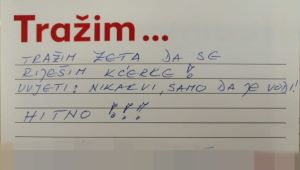 Tražim...
TRAŽIM ZETA DA SE
RIJEŠIM KĆERKE !
UVJETI: NIKAKVI, SAMO DA JE VODI!
HITNO !!!